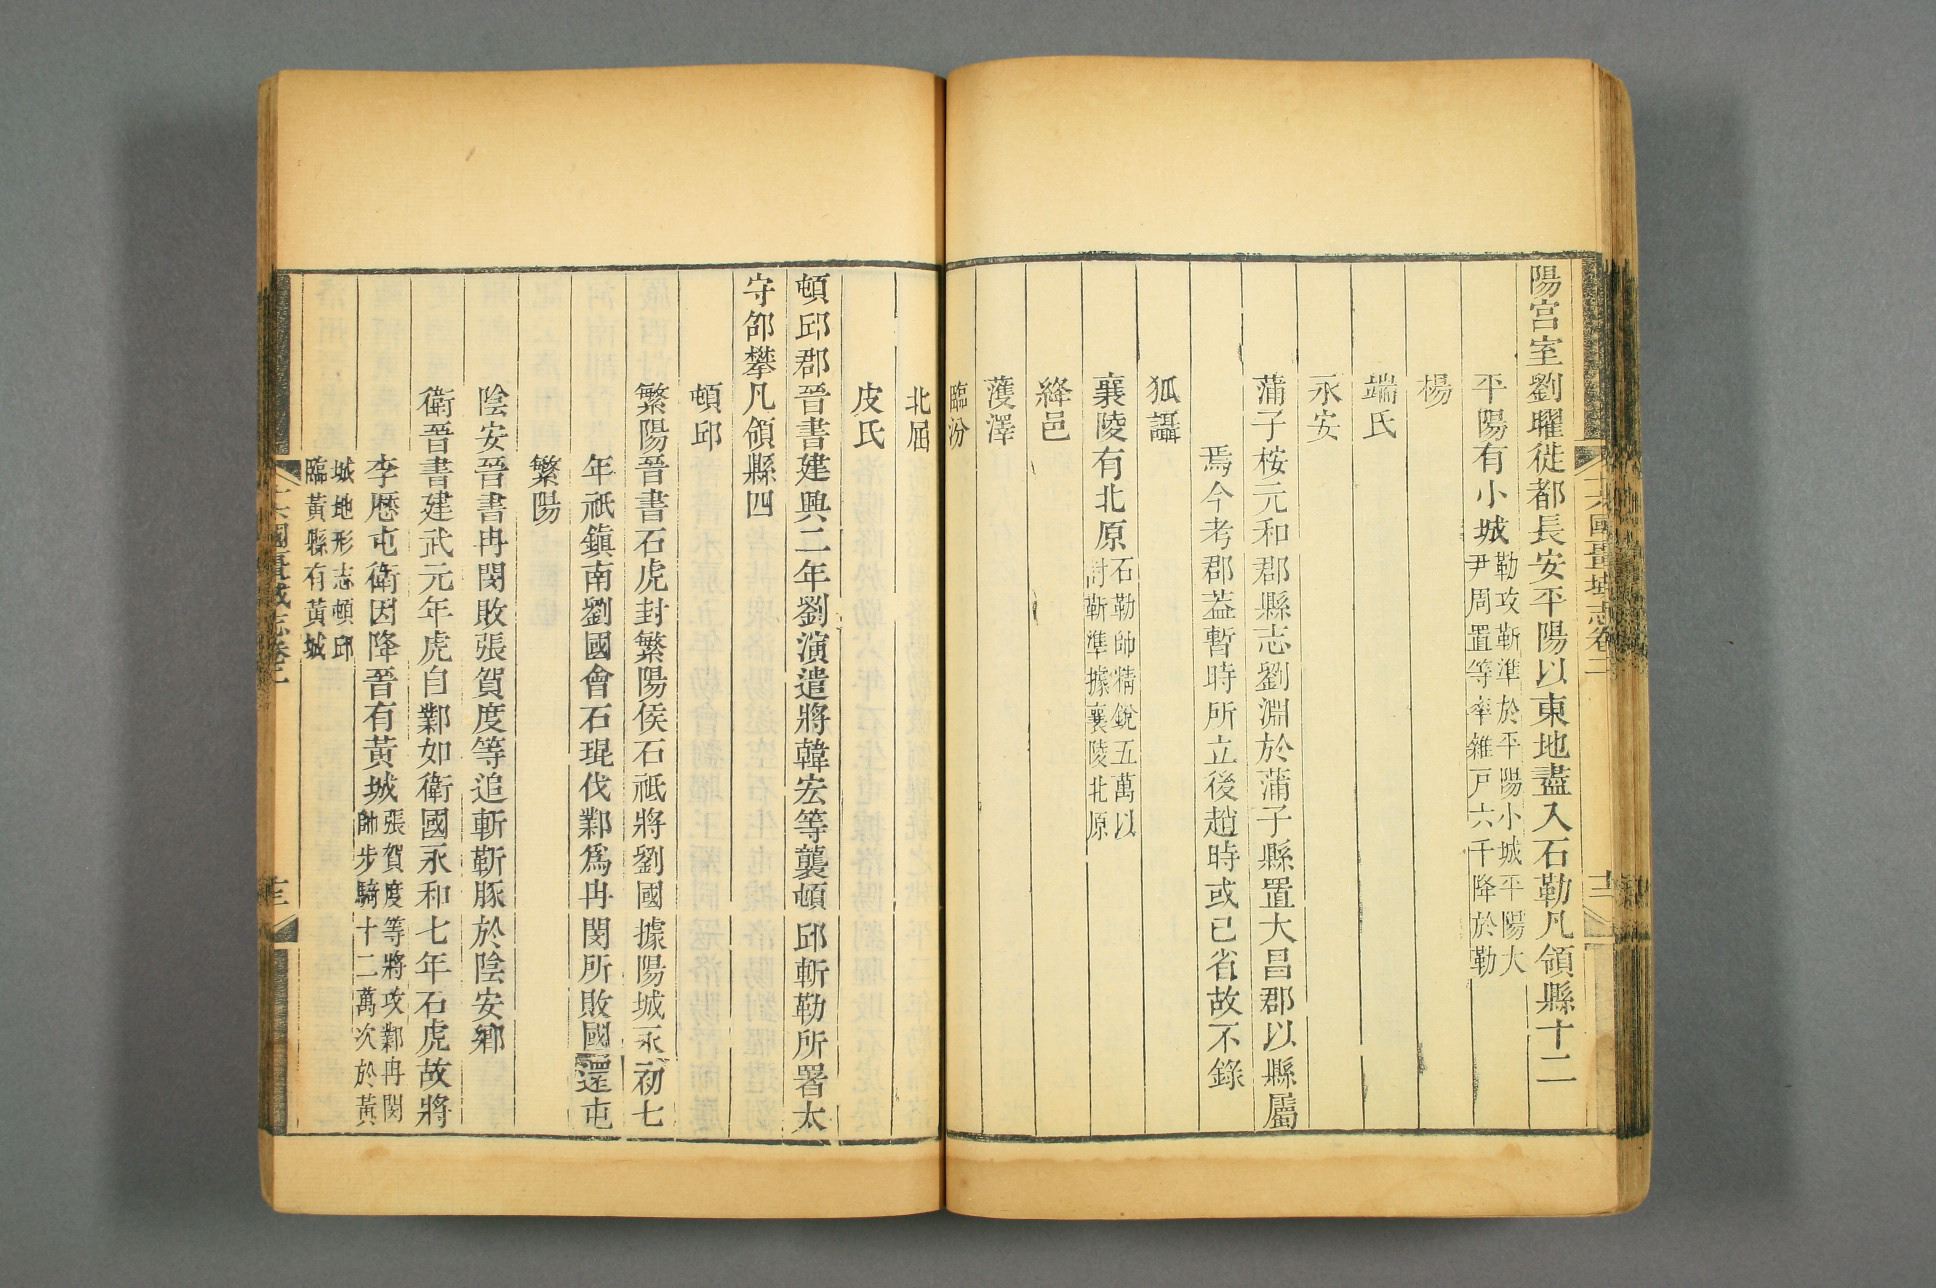 陽宮室劉曜徙都長安平陽以東地盡入石勒凡領縣十二
平陽有小城勒攻靳準於平陽小城平陽大
尹周置等率雜戸六千降於勒
楊
端氏
永安
蒲子桉元和郡縣志劉淵於蒲子縣置大昌郡以縣屬
焉今考郡葢暫時所立後趙時或已省故不錄
狐讘
襄陵有北原石勒帥精銳五萬以
討靳準據襄陵北原
絳邑
濩澤
臨汾
十六國疆域志卷二
十二
北屈
皮氏
頓邱郡晉書建興二年劉演遣將韓宏等襲頓邱斬勒所署太
守邵攀凡領縣四
頓邱
繁陽晉書石虎封繁陽侯石祗將劉國據陽城永初七
年祗鎮南劉國會石琨伐鄴爲冉閔所敗國還屯
繁陽
陰安晉書冉閔敗張賀度等追斬靳豚於陰安鄉
衛晉書建武元年虎自鄴如衛國永和七年石虎故將
李歷屯衛因降晉有黃城張賀度等將攻鄴冉閔
帥步騎十二萬次於黃
城地形志頓邱
臨黃縣有黃城
十六國疆域志卷二
十三